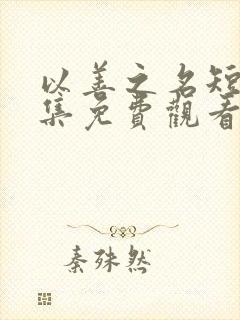 以善之名短
集免費觀看
秦殊然